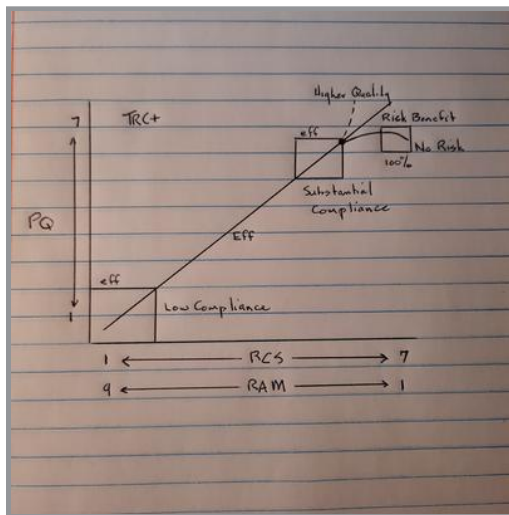 Higher Quality
7 TRC+
eff Risk Benefit
No Risk
100%
Substantial
Compliance
PQ
Eff
eff
1 Low Compliance
1 RCS 7
9 RAM 1